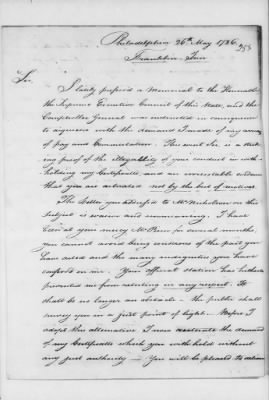 Philadelphia 26th May 1786.
Franklin Inn
Sir,
I lately prefered a Memorial to the Honorable
the Supreme Executive Council of this State, and the
Comptroller General was instructed in consequence
to acquiesce with the demand I made of my arrears
of pay and Commutation. This event Sir, is a strik
ing proof of the illegality of your conduct in with-
holding my Certificates, and an incontestable evidence
that you are actuated not by the best of motives.
The Letter you address'd to Mr Nicholson on this
subject is evasive and unmeaning. I have
been at your mercy Mr Pierce for several months,
you cannot avoid being conscious of the part you
have acted and the many indignities you have
conferred on me. Your official station has hitherto
prevented me from retorting in any respect. It
shall be no longer an obstacle – the public shall
survey you in a just point of light. Before I
adopt this alternative I now the demand
of my Certificates which you with-hold without
any just authority – You will be pleased to